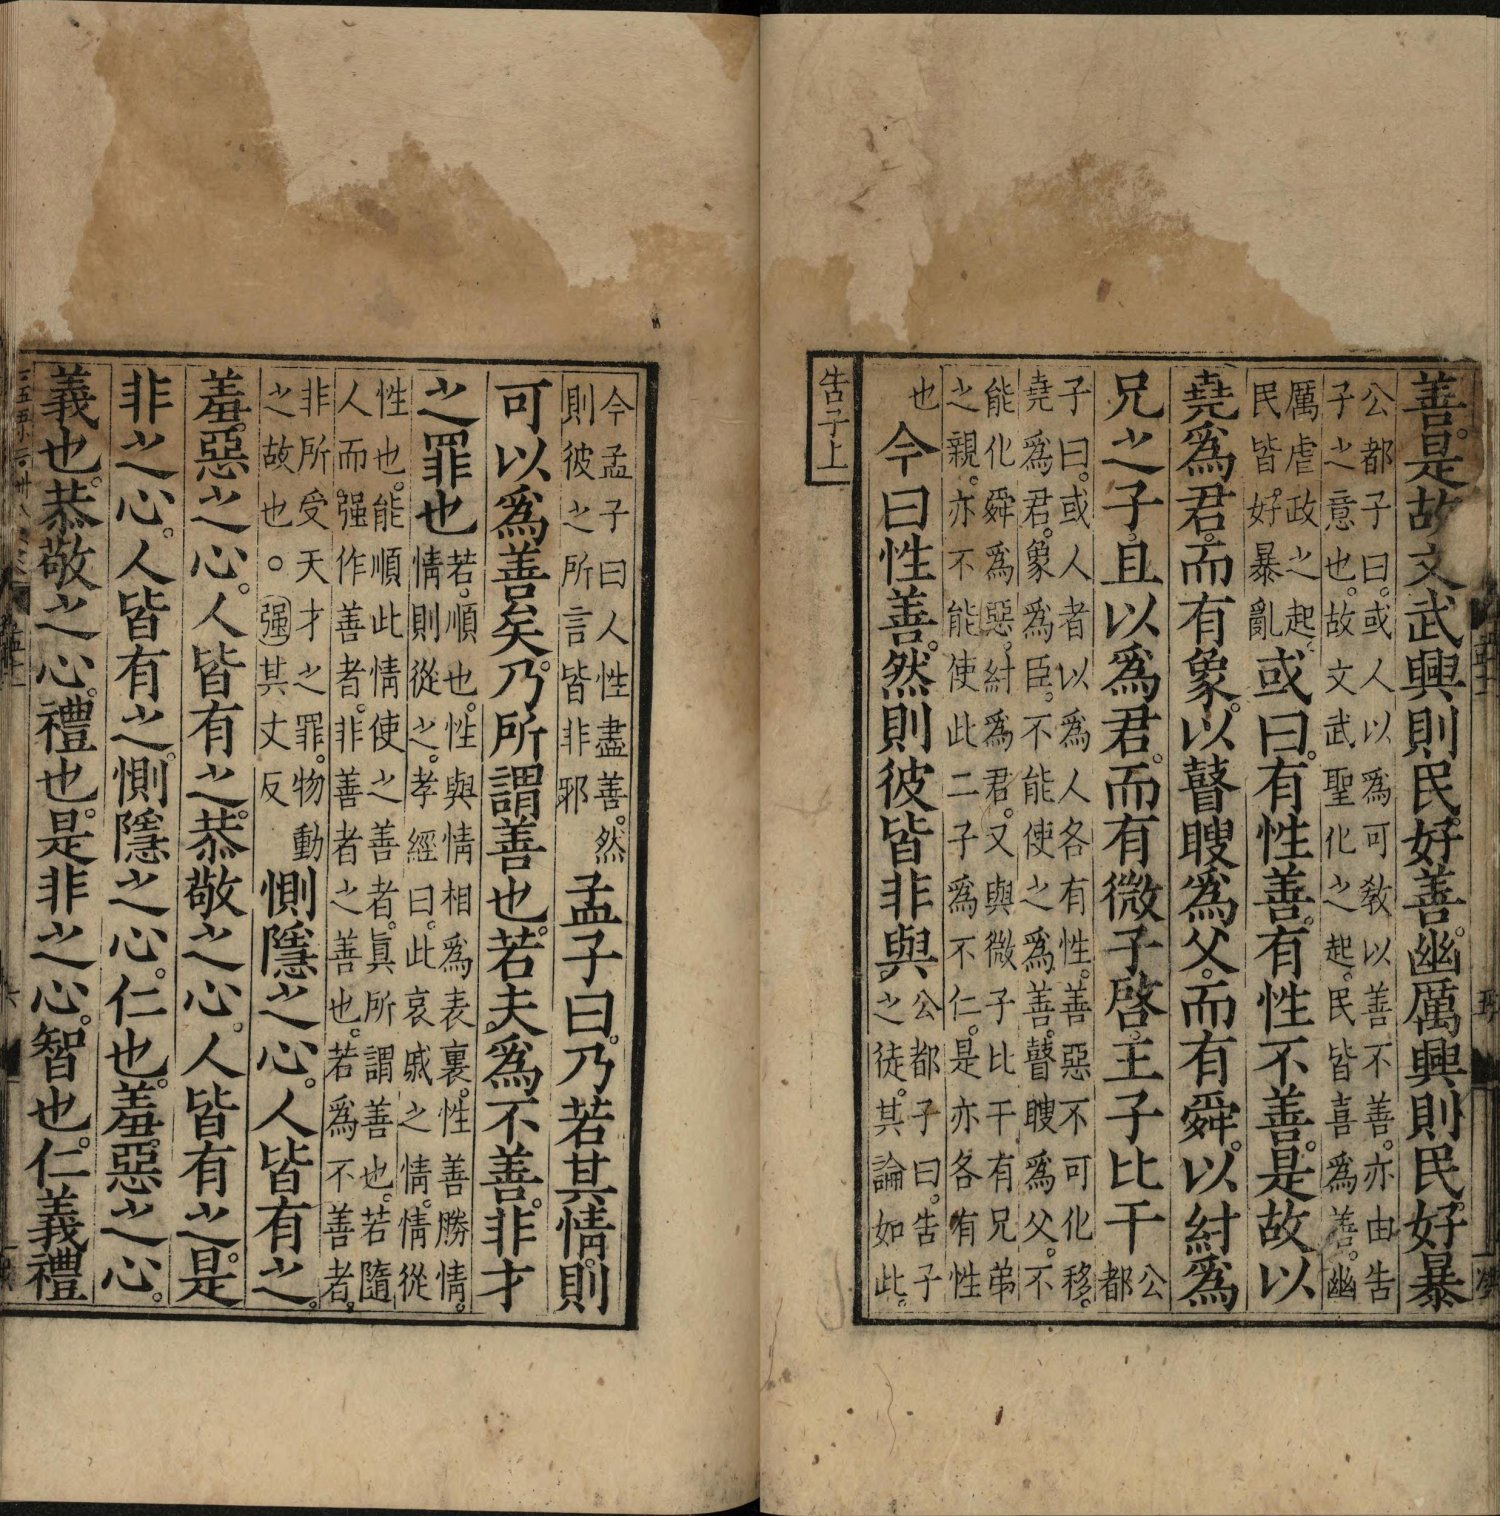 善。是故文武興則民好善。幽厲興則民好暴
公都子曰。或人以爲可敎以善不善。亦由告
子之意也。故文武聖化之起。民皆喜爲善。幽
厲虐政之起。
民皆好暴亂
或曰。有性善。有性不善。是故以
堯爲君。而有象。以瞽瞍爲父。而有舜。以紂爲
兄之子且以爲君。而有微子啓王子比干
公
都
子曰。或人者以爲人各有性。善惡不可化移。
堯爲君。象爲臣。不能使之爲善。瞽瞍爲父。不
能化舜爲惡。紂爲君。又與微子比干有兄弟
之親。亦不能使此二子爲不仁。是亦各有性
也
今曰性善。然則彼皆非與
公都子曰。告子
之徒。其論如此。
告子上
今孟子曰人性盡善。然
則彼之所言皆非邪
孟子曰。乃若其情。則
可以爲善矣。乃所謂善也。若夫爲不善。非才
之罪也
若。順也。性與情相爲表裏。性善勝情。
情則從之。孝經曰。此哀戚之情。情從
性也。能順此情使之善者。眞所謂善也。若隨
人而强作善者。非善者之善也。若爲不善者。
非所受天才之罪。物動
之故也。○强其丈反
惻隱之心。人皆有之。
羞惡之心。人皆有之。恭敬之心。人皆有之。是
非之心。人皆有之。惻隱之心。仁也。羞惡之心。
義也。恭敬之心。禮也。是非之心。智也。仁義禮